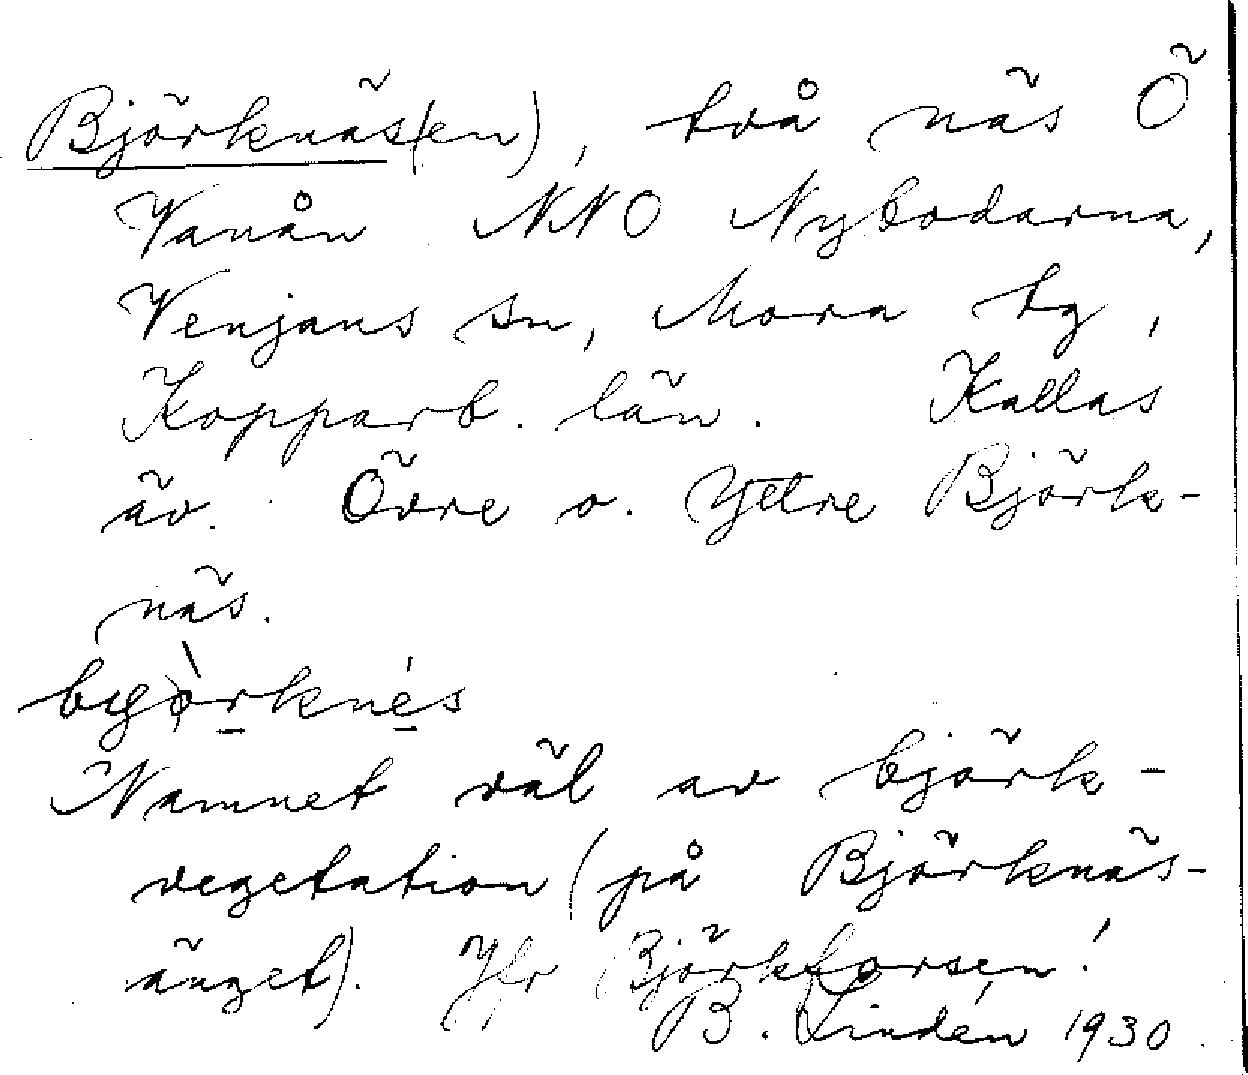 Björknäs(en), två näs Ö
Vanån NNO Nybodarna,
Venjans sn, Mora tg,
Kopparb. län. Kallas
äv. Övre o. Yttre Björk-
näs.
byòrknés
Namnet väl av björk-
vegetation (på Björknäs-
änget). Jfr Björkforsen!
B. Lindén 1930.